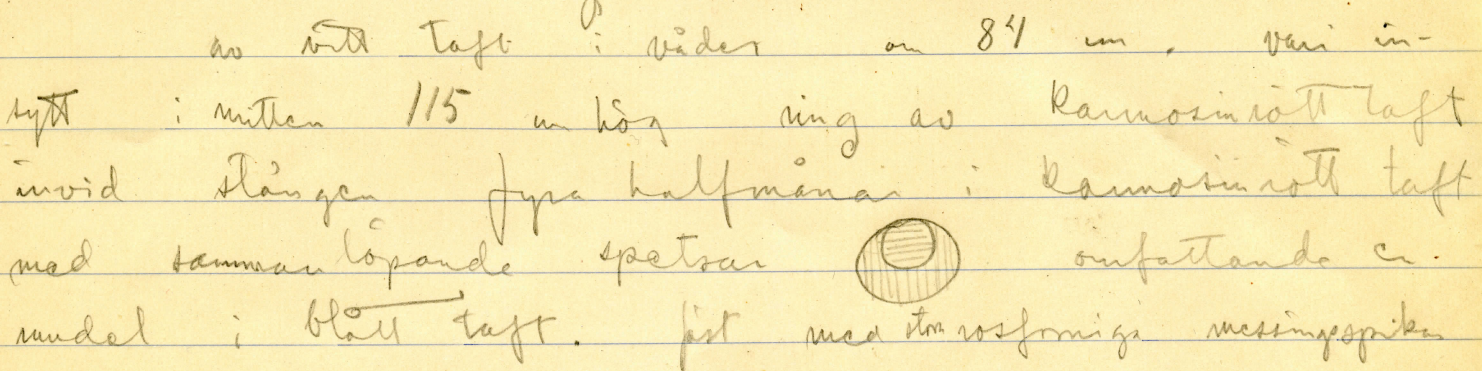 av vitt taft i våder om 84 cm. vari in-
sytt i mitten 115 cm hög ring av karmosinrött taft
invid stången fyra halfmånar i karmosinrött taft
med sammanlöpande spetsar omfattande en
rundel i blått taft. fäst med stora rosformiga messingsspikar